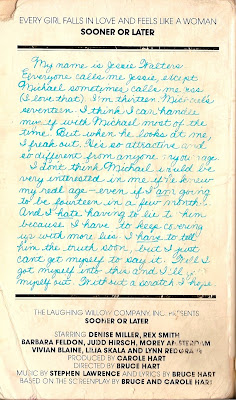 EVERY GIRL FALLS IN LOVE AND FEELS LIKE A WOMAN
SOONER OR LATER
My name is Jessie Walters.
Everyone calls me Jessie, except
Michael sometimes calls me Jess
(I love that). I'm thirteen. Michael's
seventeen. I think I can handle
myself with Michael most of the
time. But when he looks at me,
I freak out. He's so attractive and
so different from anyone my age.
I don't think Michael would be
very interested in me if he knew
my real age—even if I am going
to be fourteen in a few months.
And I hate having to lie to him
because I have to keep covering
up with more lies. I have to tell
him the truth soon, but I just
can't get myself to say it. Well I
got myself into this and I'll
myself out. Without a scratch I hope
THE LAUGHING WILLOW COMPANY, INC. PRESENTS
SOONER OR LATER
STARRING DENISE MILLER, REX SMITH
BARBARA FELDON, JUDD HIRSCH, MOREY AMSTERDAM
VIVIAN BLAINE, LILIA SKALA AND LYNN REDGRAVE
PRODUCED BY CAROLE HART
DIRECTED BY BRUCE HART
MUSIC BY STEPHEN LAWRENCE AND LYRICS BY BRUCE HART
BASED ON THE SCREENPLAY BY BRUCE AND CAROLE HART